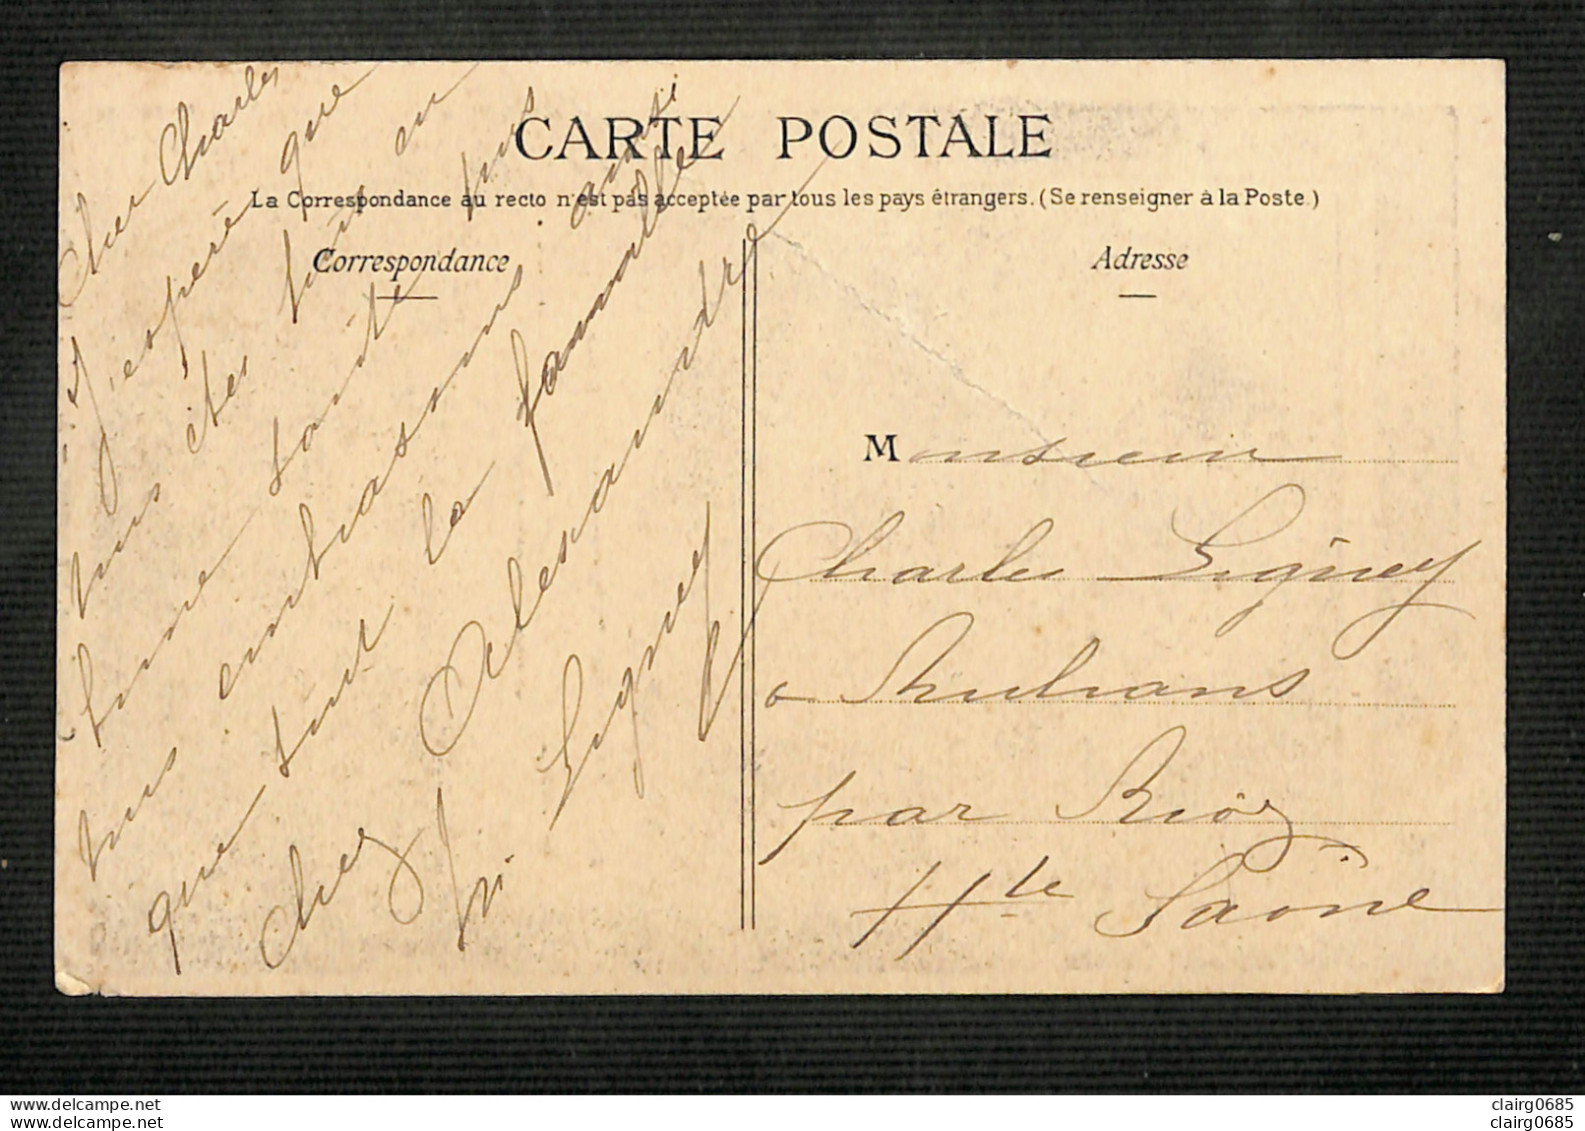 CARTE POSTALE
La Correspondance au recto n'est pas acceptée par tous les pays étrangers. (Se renseigner à la Poste.)
Correspondance
Adresse
Cher Charles
J'espère que
vous êtes tous en
bonne santé nous
vous embrassons ainsi
que tout la famille
chez Alexandre
Ligney
Monsieur
Charles Ligney
a Aulans
par Rioz
Hte Saône
www.delcampe.net
clairg0685
www.delcampe.net
clairg0685